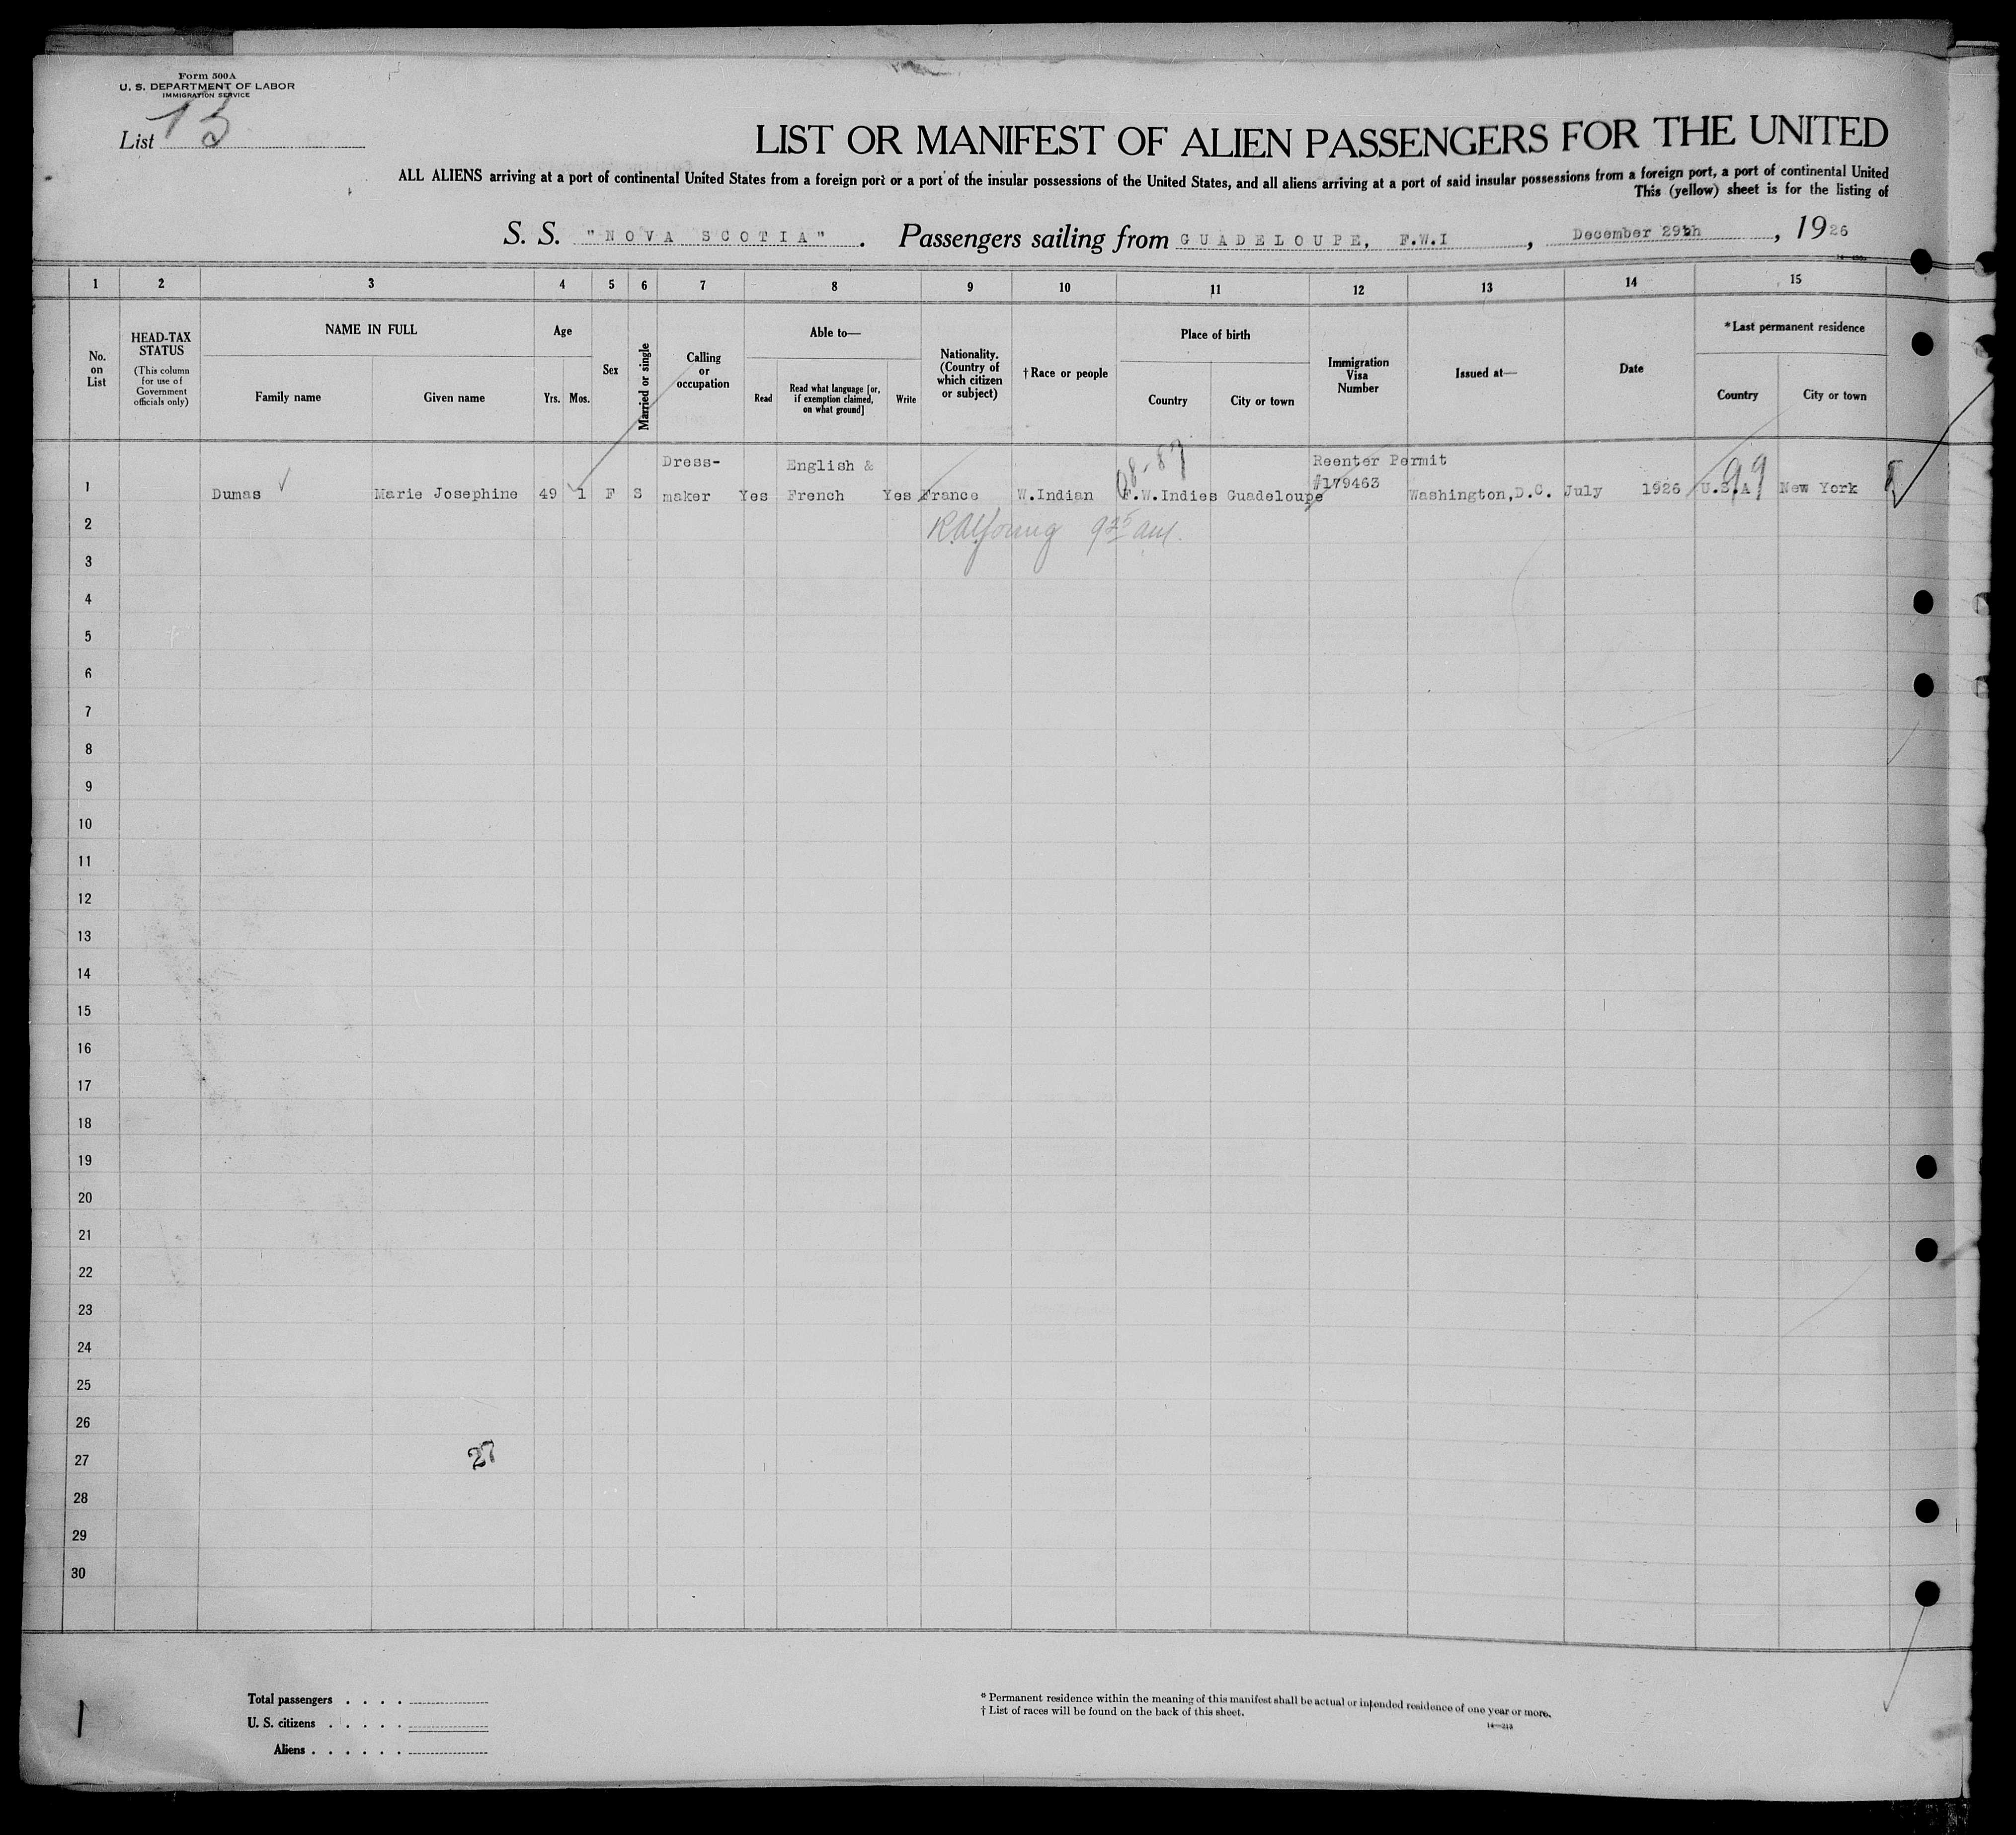 Form 500A
U. S. DEPARTMENT OF LABOR
IMMIGRATION SERVICE
List 13
LIST OR MANIFEST OF ALIEN PASSENGERS FOR THE UNITED
ALL ALIENS arriving at a port of continental United States from a foreign port or a port of the insular possessions of the United States, and all aliens arriving at a port of said insular possessions from a foreign port, a port of continental United
This (yellow) sheet is for the listing of
S. S. "NOVA SCOTIA". Passengers sailing from GUADELOUPE, F.W.I, December 29th, 1926
1 2 3 4 5 6 7 8 9 10 11 12 13 14 15
No. on List
HEAD-TAX STATUS
(This column for use of Government officials only)
NAME IN FULL
Family name
Given name
Age
Yrs. Mos.
Sex
Married or single
Calling or occupation
Able to—
Read
Read what language [or, if exemption claimed, on what ground]
Write
Nationality. (Country of which citizen or subject)
†Race or people
Place of birth
Country
City or town
Immigration Visa Number
Issued at—
Date
*Last permanent residence
Country
City or town
1 Dumas Marie Josephine 49 1 F S Dress-maker Yes English & French Yes France W.Indian F.W.Indies Guadeloupe Reenter Permit #179463 Washington,D.C. July 1926 U.S.A New York
99
2
3
4
5
6
7
8
9
10
11
12
13
14
15
16
17
18
19
20
21
22
23
24
25
26
27
27
28
29
30
Total passengers . . . .
U. S. citizens . . . . .
Aliens . . . . . .
* Permanent residence within the meaning of this manifest shall be actual or intended residence of one year or more.
† List of races will be found on the back of this sheet.
14—213
1